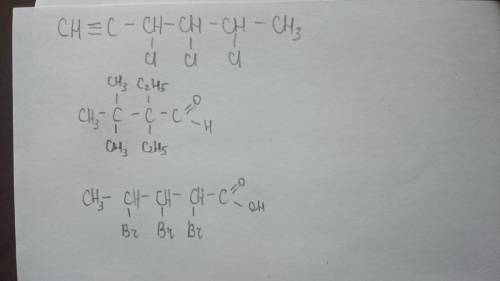 CH≡C-CH-CH-CH-CH3
Cl Cl Cl
CH3 C2H5
CH3-C-C-C=O
H
CH3 C2H5
CH3-CH-CH-CH-C=O
OH
Br Br Br